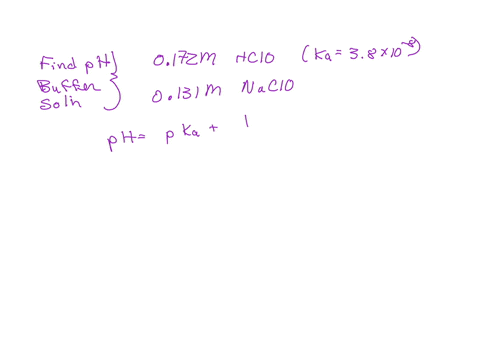 Find pH 0.172M HClO (Ka = 3.8 x 10⁻⁸)
Buffer
Soln 0.131M NaClO
pH = pKa + l